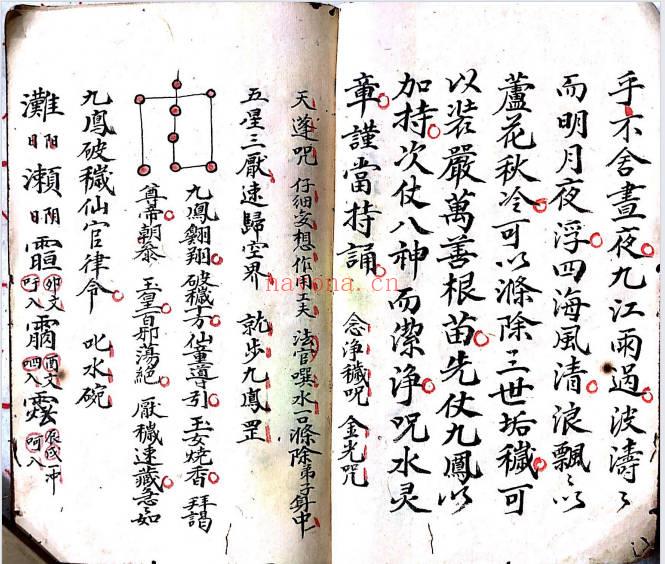 乎不舍晝夜九江雨過波濤々
而明月夜浮四海風清浪飄々以
蘆花秋冷可以滌除三世垢穢可
以裝嚴萬善根苗先仗九鳳以
加持次仗八神而潔净呪水灵
章謹當持誦 念浄穢呢 金光咒
天蓬咒 仔細妄想作用工夫 法官噀水一口滌除弟子身中
五星三厭速歸空界 就步九鳳罡
九鳳翱翔 破穢十方仙童導引 玉女燒香 拜謁
尊帝朝叅 玉皇百邪蕩絕 厭穢速藏急如
九鳳破穢仙官律令 叱水碗
灘 瀨 入 入 入
nanona.cn